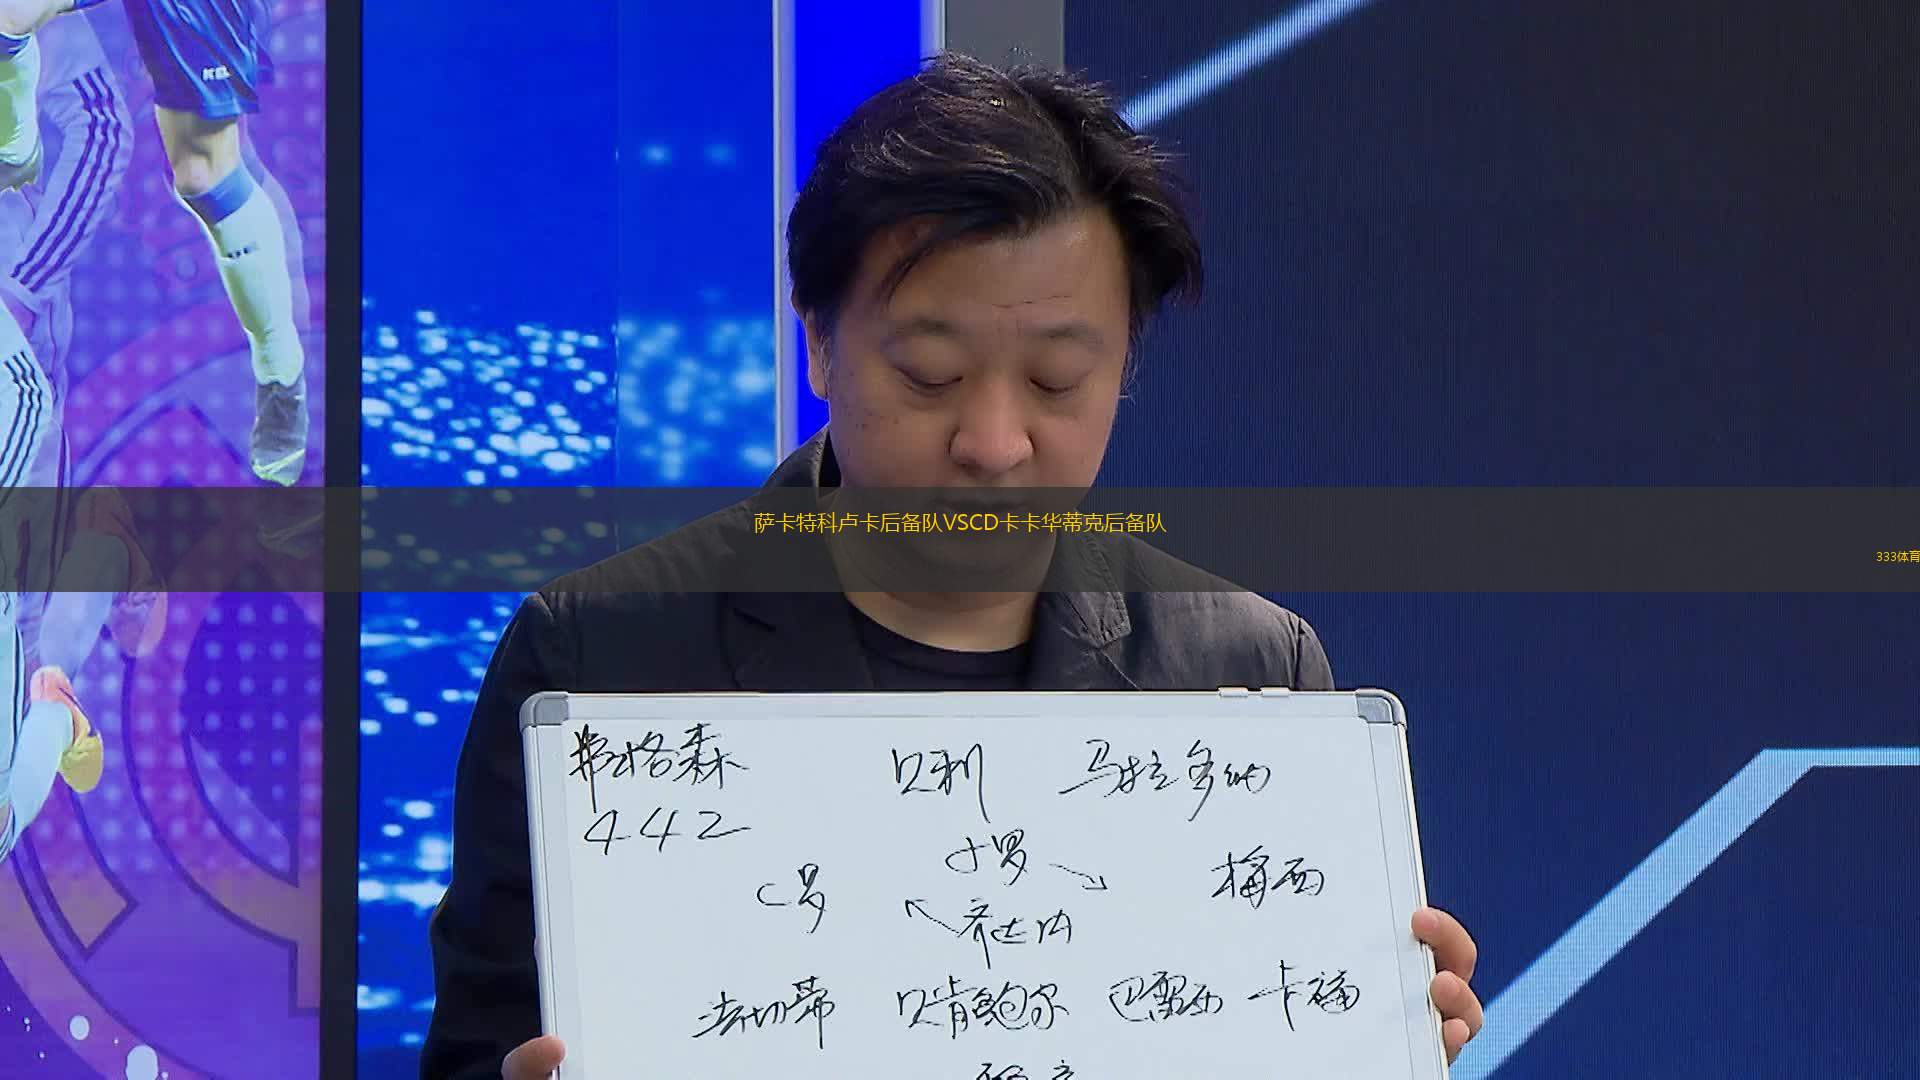 萨卡特科卢卡后备队VSCD卡卡华蒂克后备队
333体育
弗格森 贝利 马拉多纳
442
小罗
C罗 梅西
齐达内
法切蒂 贝肯鲍尔 巴雷西 卡福